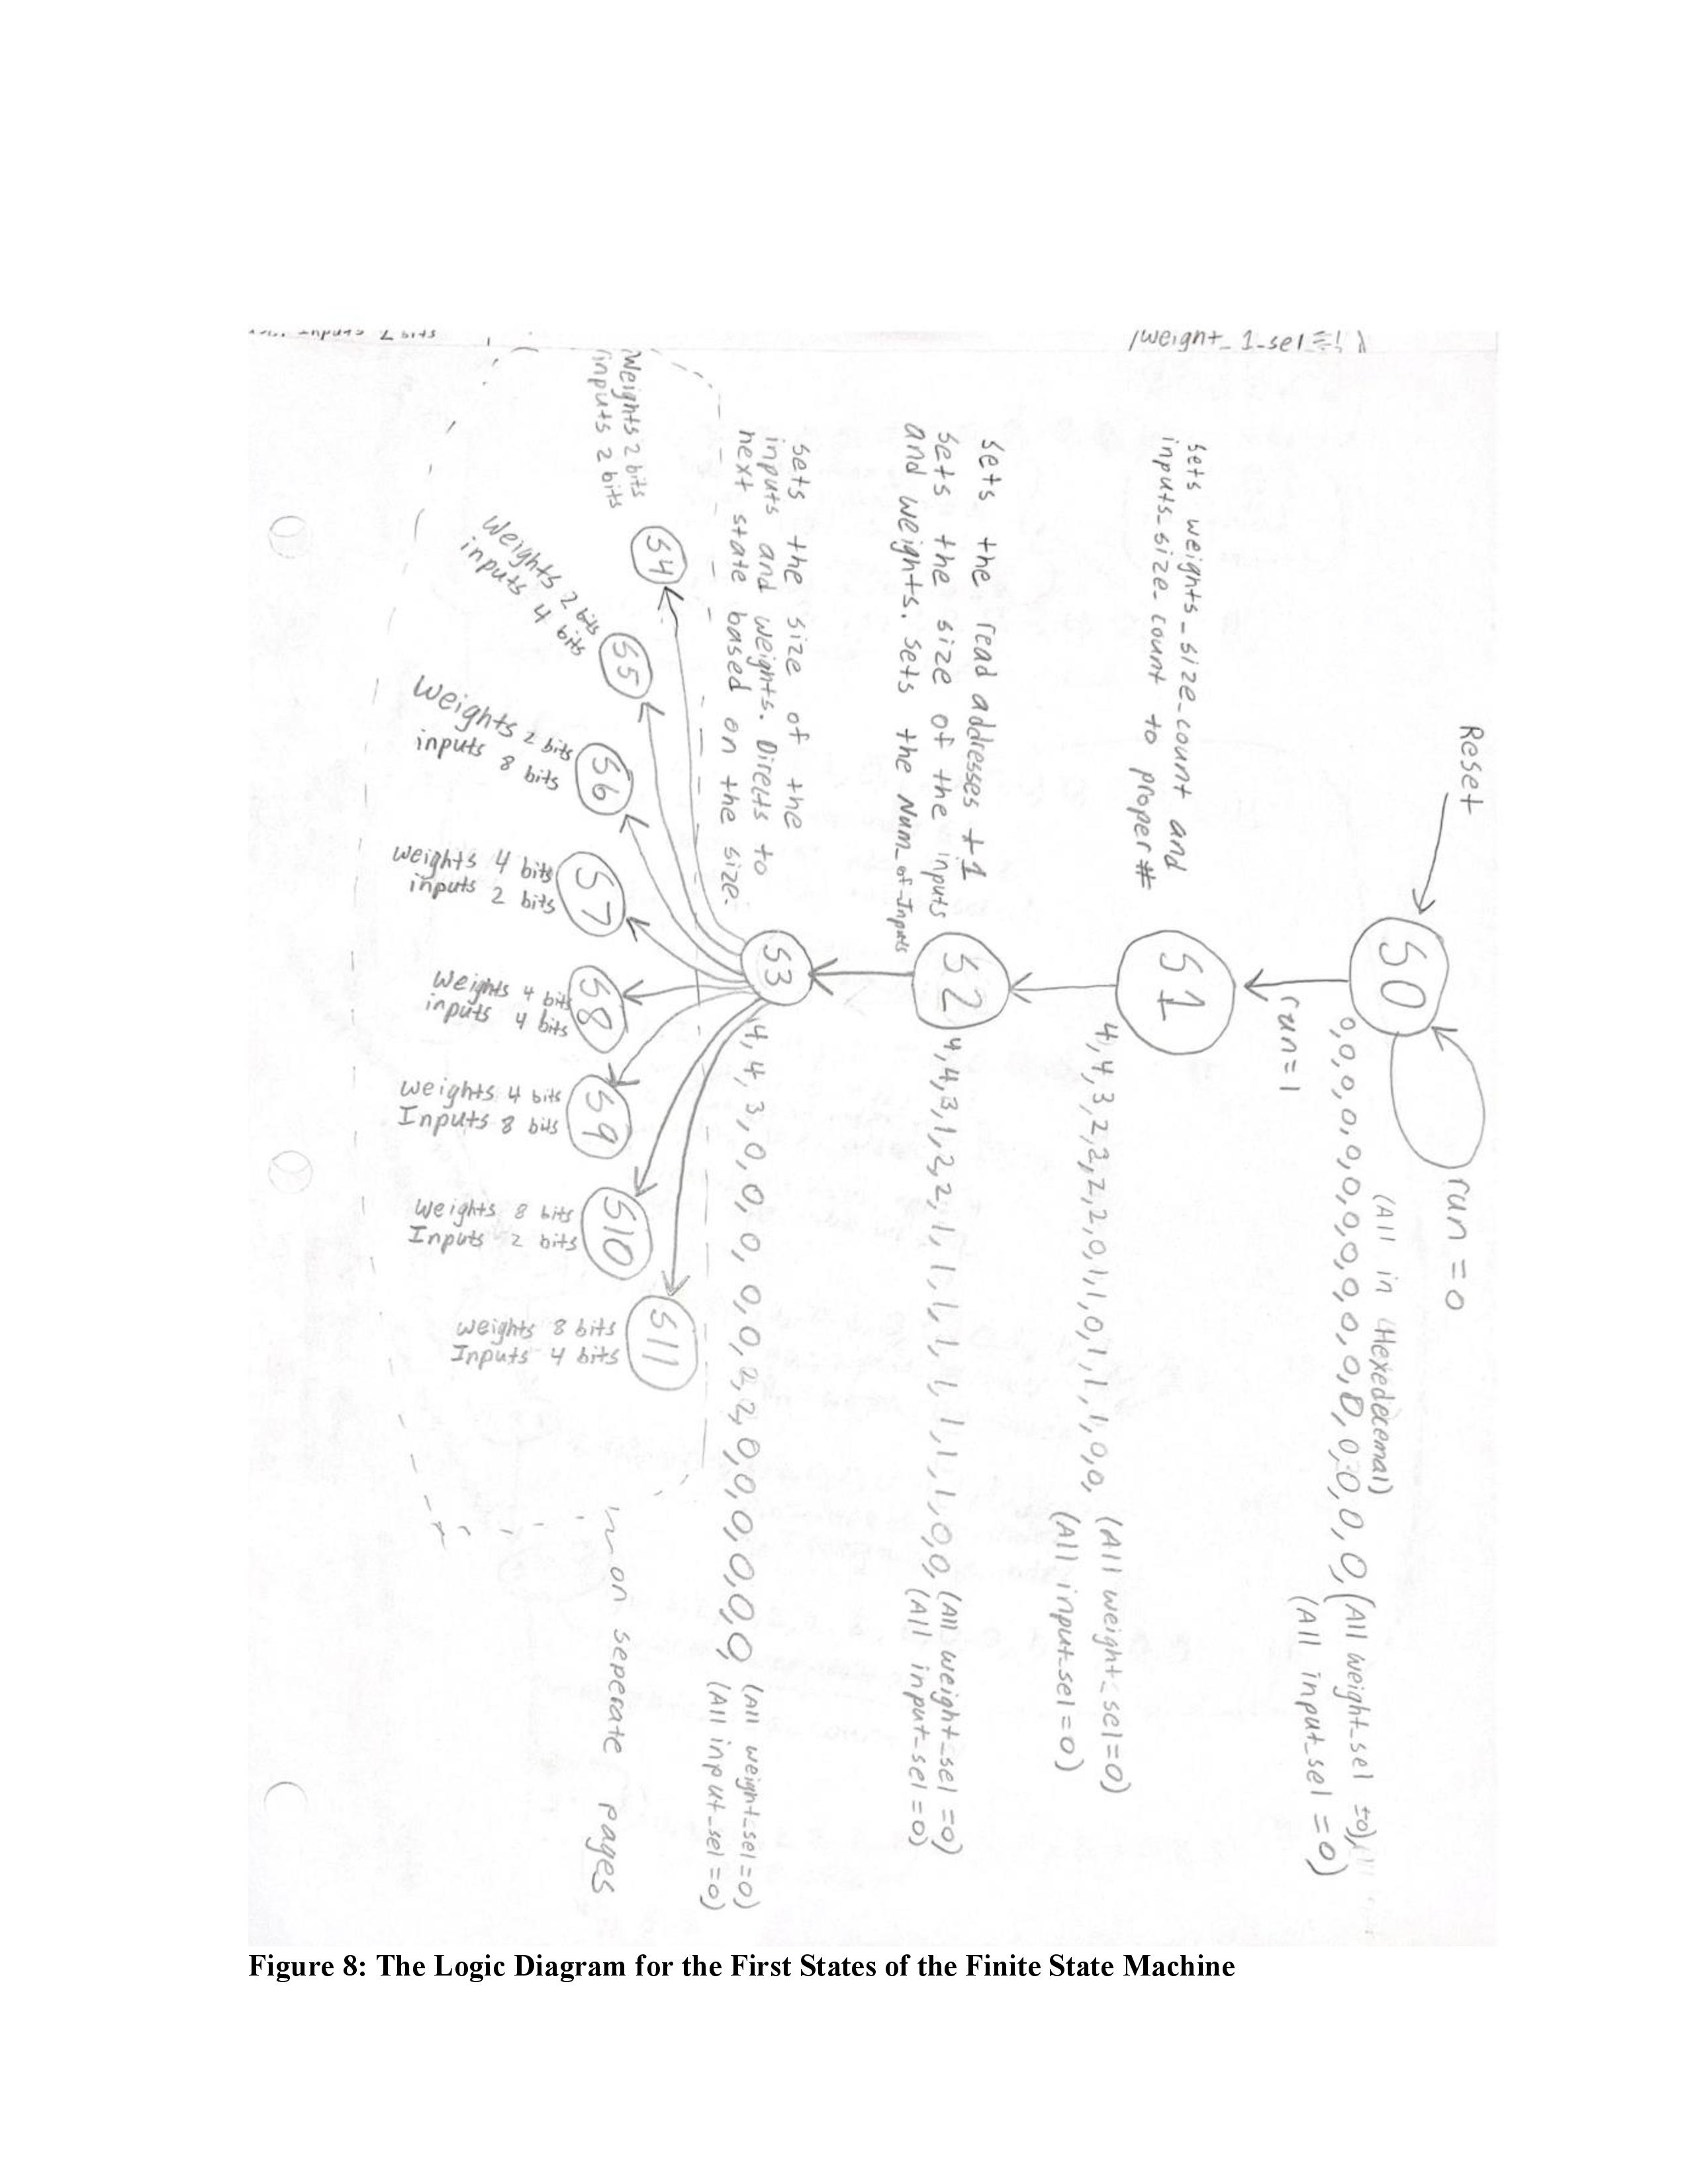 Reset
run=0
(All in Hexedecemal)
S0
0,0,0,0,0,0,0,0,0,0,0,0,0,0,0,0,0,(All weight_sel =0),
(All input_sel =0)
run=1
sets weights_size_count and
inputs_size_count to proper #
S1
4,4,3,2,2,2,2,0,1,1,0,1,1,1,0,0, (All weight_sel=0)
(All input_sel=0)
Sets the read addresses +1
sets the size of the inputs
and weights. sets the Num_of_Inputs
S2
4,4,3,1,2,2,1,1,1,1,1,1,1,1,0,0, (All weight_sel =0)
(All input_sel=0)
sets the size of the
inputs and weights. Directs to
next state based on the size.
S3
4,4,3,0,0,0,0,0,2,2,0,0,0,0,0,0, (All weight_sel=0)
(All input_sel=0)
Weights 2 bits
inputs 2 bits
S4
Weights 2 bits
inputs 4 bits
S5
Weights 2 bits
inputs 8 bits
S6
weights 4 bits
inputs 2 bits
S7
Weights 4 bits
inputs 4 bits
S8
Weights 4 bits
Inputs 8 bits
S9
Weights 8 bits
Inputs 2 bits
S10
weights 8 bits
Inputs 4 bits
S11
on seperate pages
weight_1_sel
Inputs 2 bits
Figure 8: The Logic Diagram for the First States of the Finite State Machine